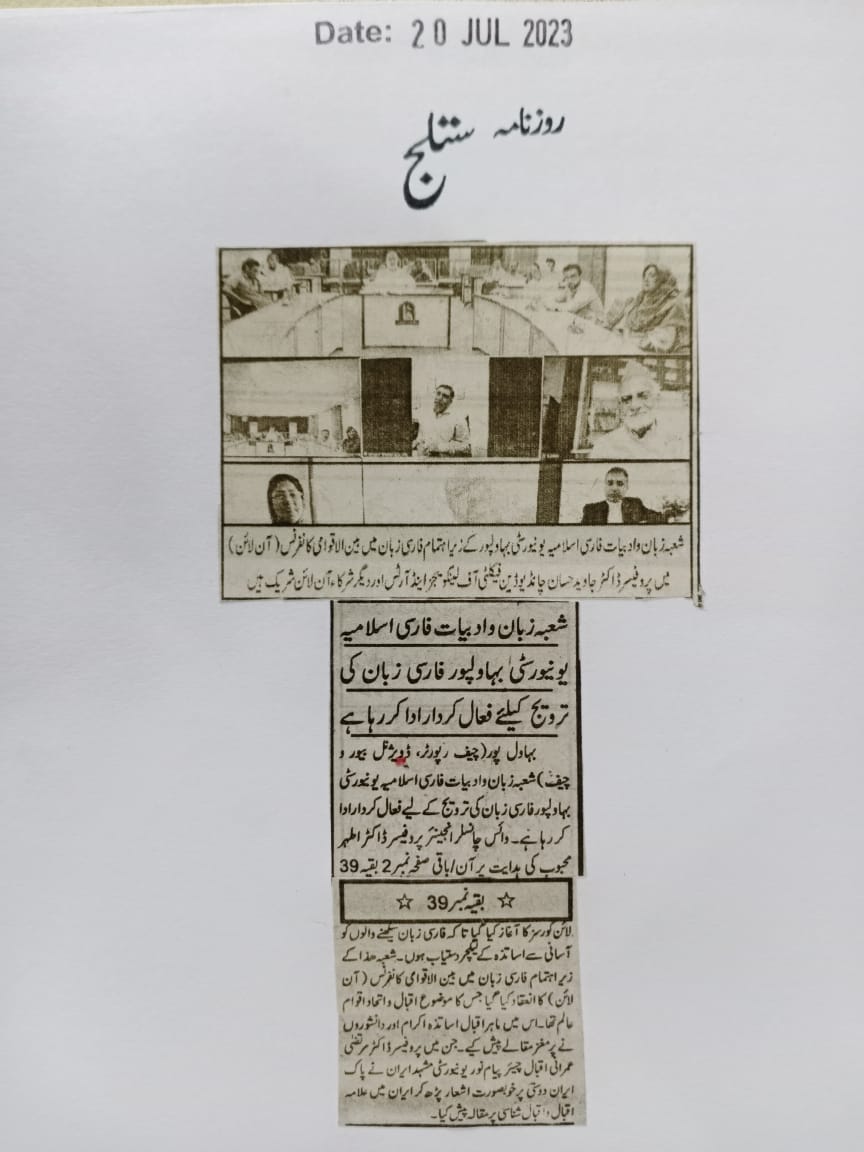 Date: 20 JUL 2023
روزنامہ ستلج
شعبہ زبان و ادبیات فارسی اسلامیہ یونیورسٹی بہاولپور کے زیر اہتمام فارسی زبان میں بین الاقوامی کانفرنس (آن لائن)
میں پروفیسر ڈاکٹر جاوید حسان چانڈیو ڈین فیکلٹی آف لینگویجز اینڈ آرٹس اور دیگر شرکاء آن لائن شریک ہیں
شعبہ زبان و ادبیات فارسی اسلامیہ
یونیورسٹی بہاولپور فارسی زبان کی
ترویج کیلئے فعال کردار ادا کر رہا ہے
بہاول پور (چیف رپورٹر، ڈویژنل بیور و
چیف) شعبہ زبان و ادبیات فارسی اسلامیہ یونیورسٹی
بہاولپور فارسی زبان کی ترویج کے لیے فعال کردار ادا
کر رہا ہے۔ وائس چانسلر انجینئر پروفیسر ڈاکٹر اطہر
محبوب کی ہدایت پر آن/باقی صفحہ نمبر 2 بقیہ 39
☆ بقیہ نمبر 39 ☆
لائن کورسز کا آغاز کیا گیا تا کہ فارسی زبان سیکھنے والوں کو
آسانی سے اساتذہ کے لیکچر دستیاب ہوں۔ شعبہ ھذا کے
زیر اہتمام فارسی زبان میں بین الاقوامی کانفرنس (آن
لائن) کا انعقاد کیا گیا جس کا موضوع اقبال و اتحاد اقوام
عالم تھا۔ اس میں ماہر اقبال اساتذہ اکرام اور دانشوروں
نے پر مغز مقالے پیش کیے۔ جن میں پروفیسر ڈاکٹر مرتضیٰ
عمرانی اقبال چیئر پیام نور یونیورسٹی مشہد ایران نے پاک
ایران دوستی پر خوبصورت اشعار پڑھ کر ایران میں علامہ
اقبال و اقبال شناسی پر مقالہ پیش کیا۔